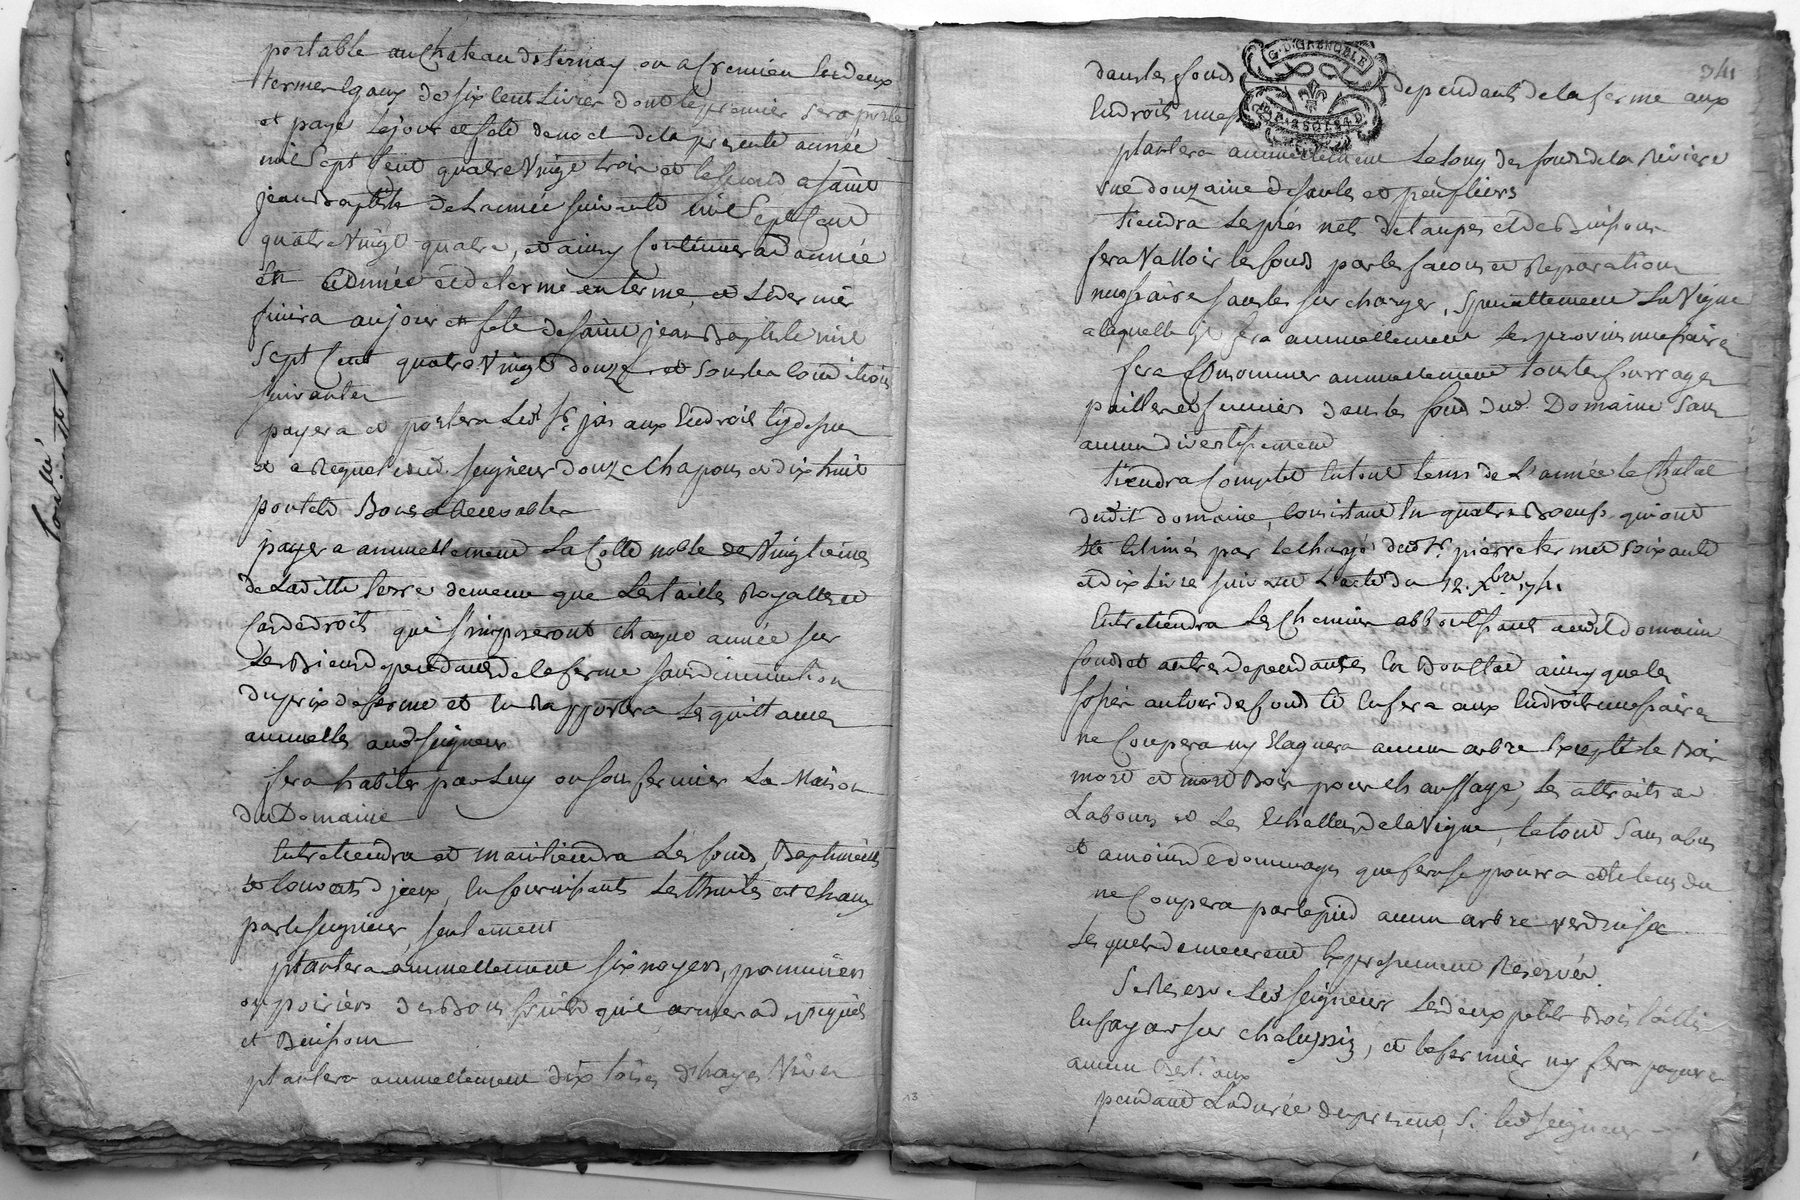 portable au Chateau de ternay ou a Cremieu les deux
termes egaux de six cent livres dont le premier sera porté
et payé le jour et fete de noel de la presente année
mil sept cent quatre vingt trois et le second a saint
jean Baptiste de l'année suivante mil sept cent
quatre vingt quatre, et ainsy continuera d'année
en année et de terme en terme, et le dernier
finira au jour et fete de saint jean Baptiste mil
sept cent quatre vingt douze et sous les conditions
suivantes
payera et portera ledt Sr. jas aux endroits cy dessus
et a Requet dud. seigneur douze chapons et dix huit
poulets Bons et Recevables
payera annuellement la cotte noble des vingtiemes
de laditte terre de meme que les tailles Royalles et
cas de droits qui s'imposeront chaque année sur
les Biens dependants de la ferme sans diminution
du prix de ferme et en Rapportera les quittances
annuelles audt seigneur
fera habiter par luy ou son fermier la Maison
du Domaine
Entretiendra et maintiendra les fonds, Baptiments
et couverts d'jceux, en fournissants les thuiles et chaux
par le seigneur seulement
plantera annuellement six noyers, pommiers
ou poiriers de Bon fruit qu'il armera de piques
et Buissons
plantera annuellement dix toises d'hayes vives
dans les fonds dependants de la ferme aux
Endroits necess
G. D. GRENOBLE
plantera annuellement le long des fonds de la Riviere
une douzaine de saules et peupliers
tiendra les prés nets de taupes et de Buissons
fera valloir les fonds par les facons et Reparations
necessaires sans les surcharger, specialement la vigne
a laquelle jl fera annuellement les provins necessaires
fera Consommer annuellement tous les fourrages
pailles et fumiers dans les fonds dud. Domaine sans
aucun divertissement
tiendra Compte en tout tems de l'année le Chatal
dudit domaine, consistant en quatre Boeufs qui ont
été Estimés par le chargé dudt Sr. pierre termet soixante
et dix livres suivant l'acte du 12. Xbre 1741
Entretiendra les Chemins abboutissants audt domaine
fonds et autres dependants en Bon Etat ainsy que les
fossés autour des fonds et en fera aux Endroits necessaires
ne Coupera ny Elaguera aucun arbre Excepté le Bois
mort et mort Bois pour chauffage, les attraits de
Labours et les Echallas de la vigne, le tout sans abus
et a moins de dommages que faire se pourra et de tems du
ne Coupera par le pied aucun arbre verd ni sec
lesquels demeurent Expressement Reservés.
Se Reserve ledt seigneur les deux petits Bois taillis
en fayar sur chaleyssin, et le fermier ny fera paquerer
aucun Bestiaux
pendant la durée du present, Si ledt seigneur
13